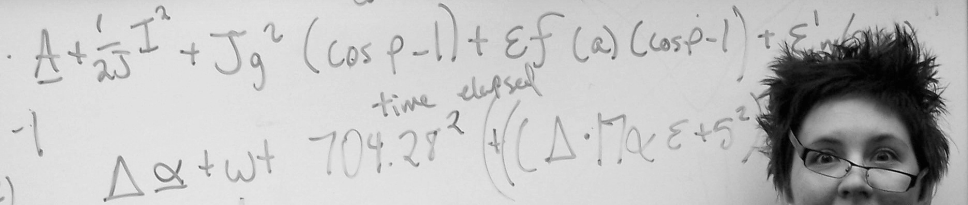 · A + 1/2J I² + Jg² (cos p - 1) + εf (a) (cos p - 1) + ε'
time elapsed
-1 Δ α + ωt 704.28² (t(( Δ · Γ α ε + 5²)